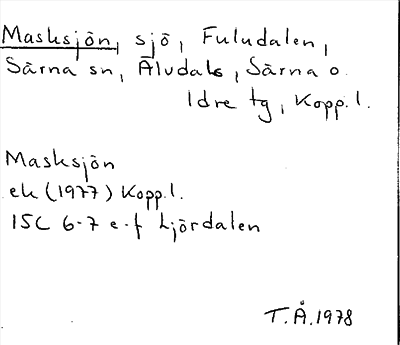 Masksjön, sjö, Fuludalen,
Särna sn, Älvdals, Särna o.
Idre tg, Kopp.l.
Masksjön
ek (1977) Kopp.l.
15C 6-7 e-f Ljördalen
T.Å.1978